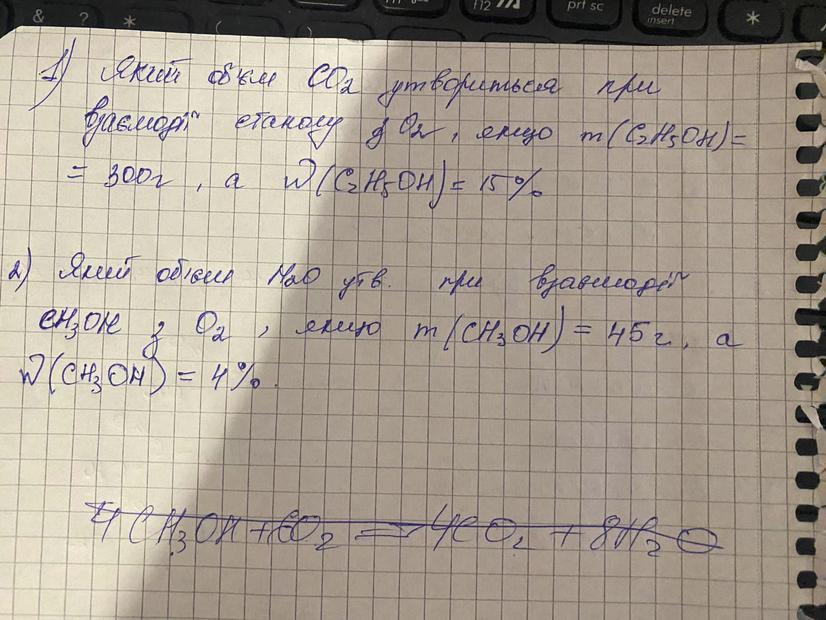 & ? * prt sc delete insert *
1) Який обєм CO2 утвориться при
взаємодії етанолу з O2, якщо m(C2H5OH)=
= 300г, а W(C2H5OH)= 15%
2) Який обєм H2O утв. при взаємодії
CH3OH з O2, якщо m(CH3OH) = 45г, а
W(CH3OH) = 4%.
4CH3OH + O2 = 4CO2 + 8H2O